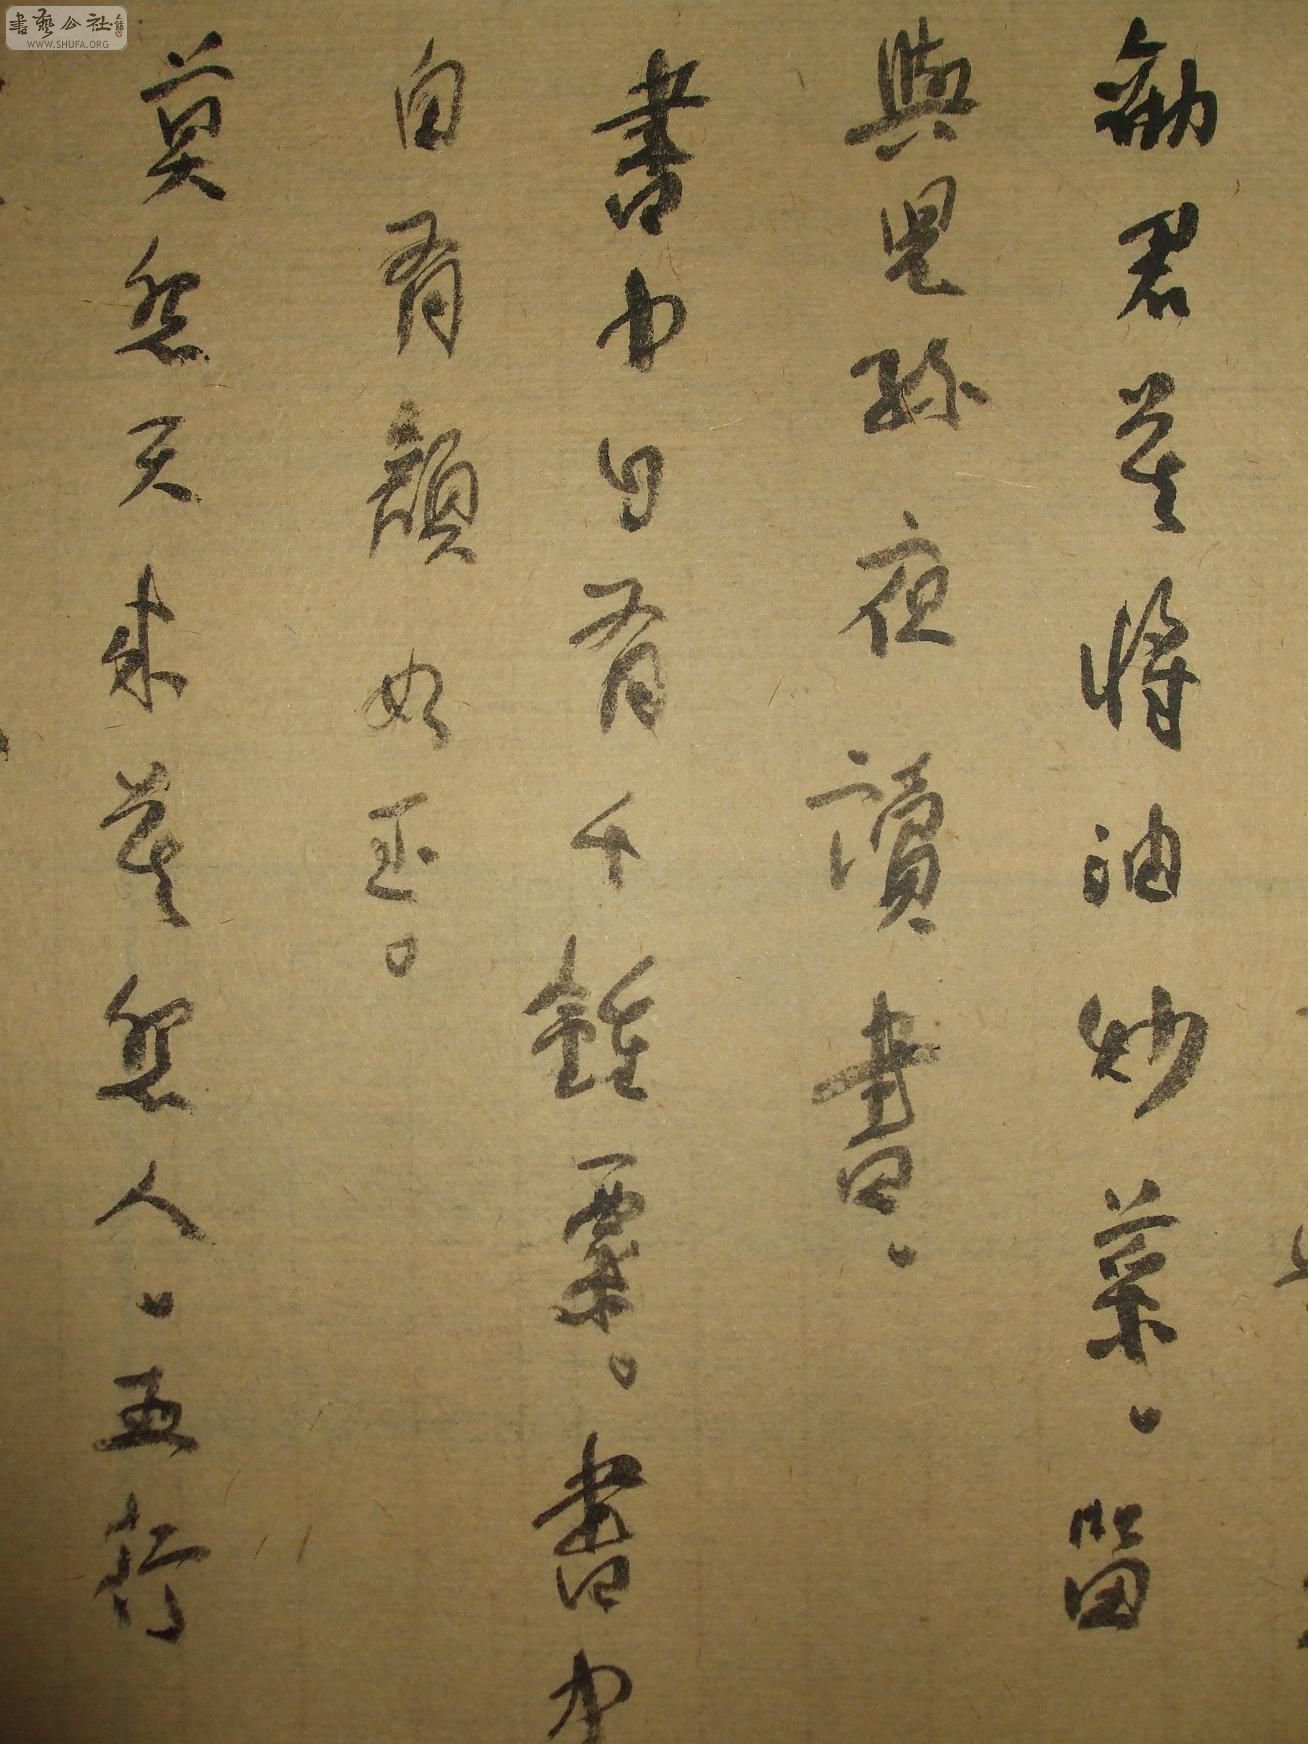 書藝公社
WWW.SHUFA.ORG
勸君莫將油炒菜。留
與兒孫夜讀書。
書中自有千鍾粟。書中
自有顏如玉。
莫怨天來莫怨人。五行